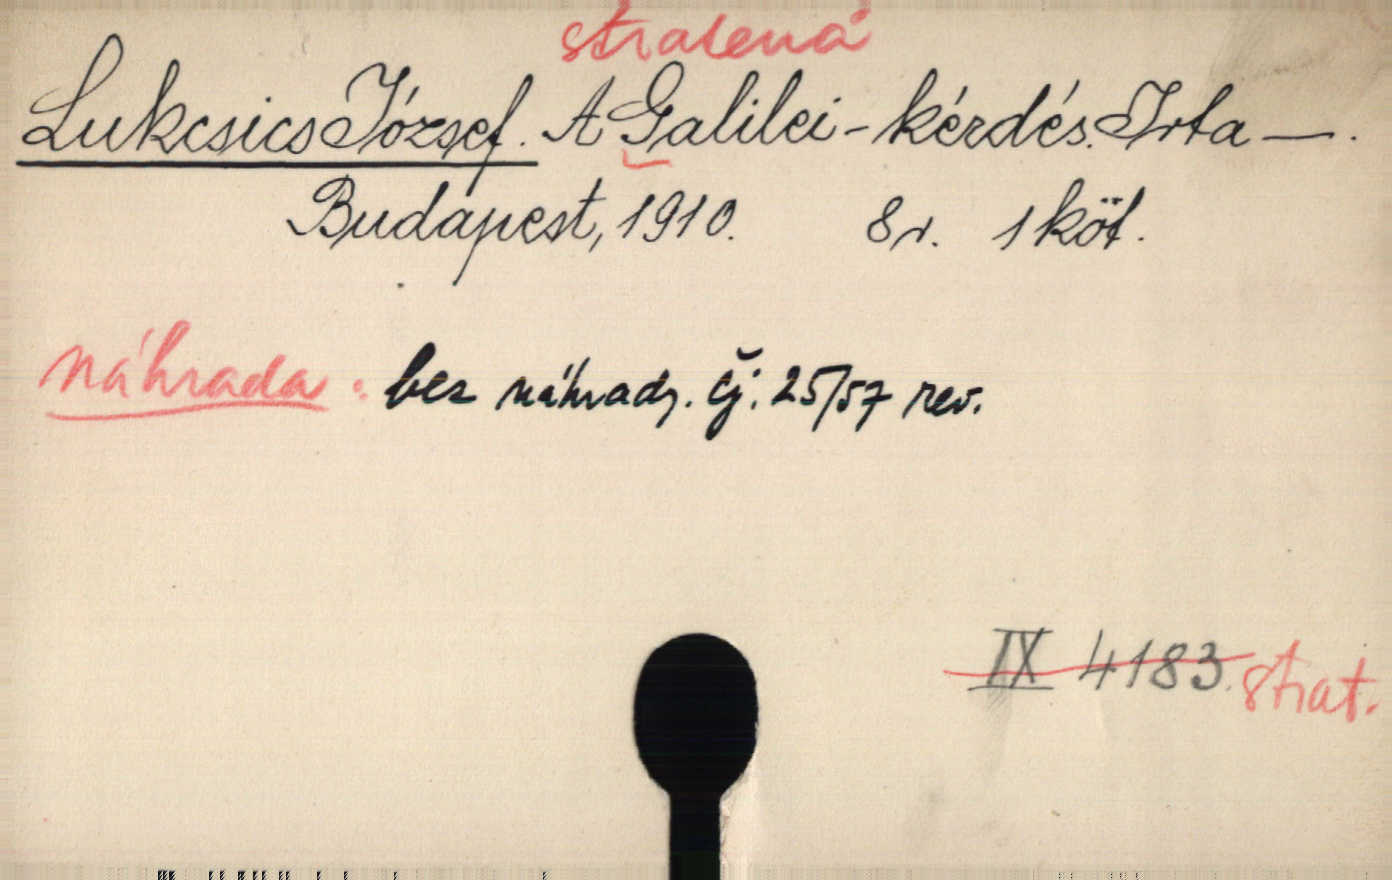 stratená
Lukcsics József. A Galilei-kérdés. Irta —.
Budapest, 1910. 8r. 1 köt.
náhrada: bez náhrady. čj. 25/57 rev.
IX 4183. strat.